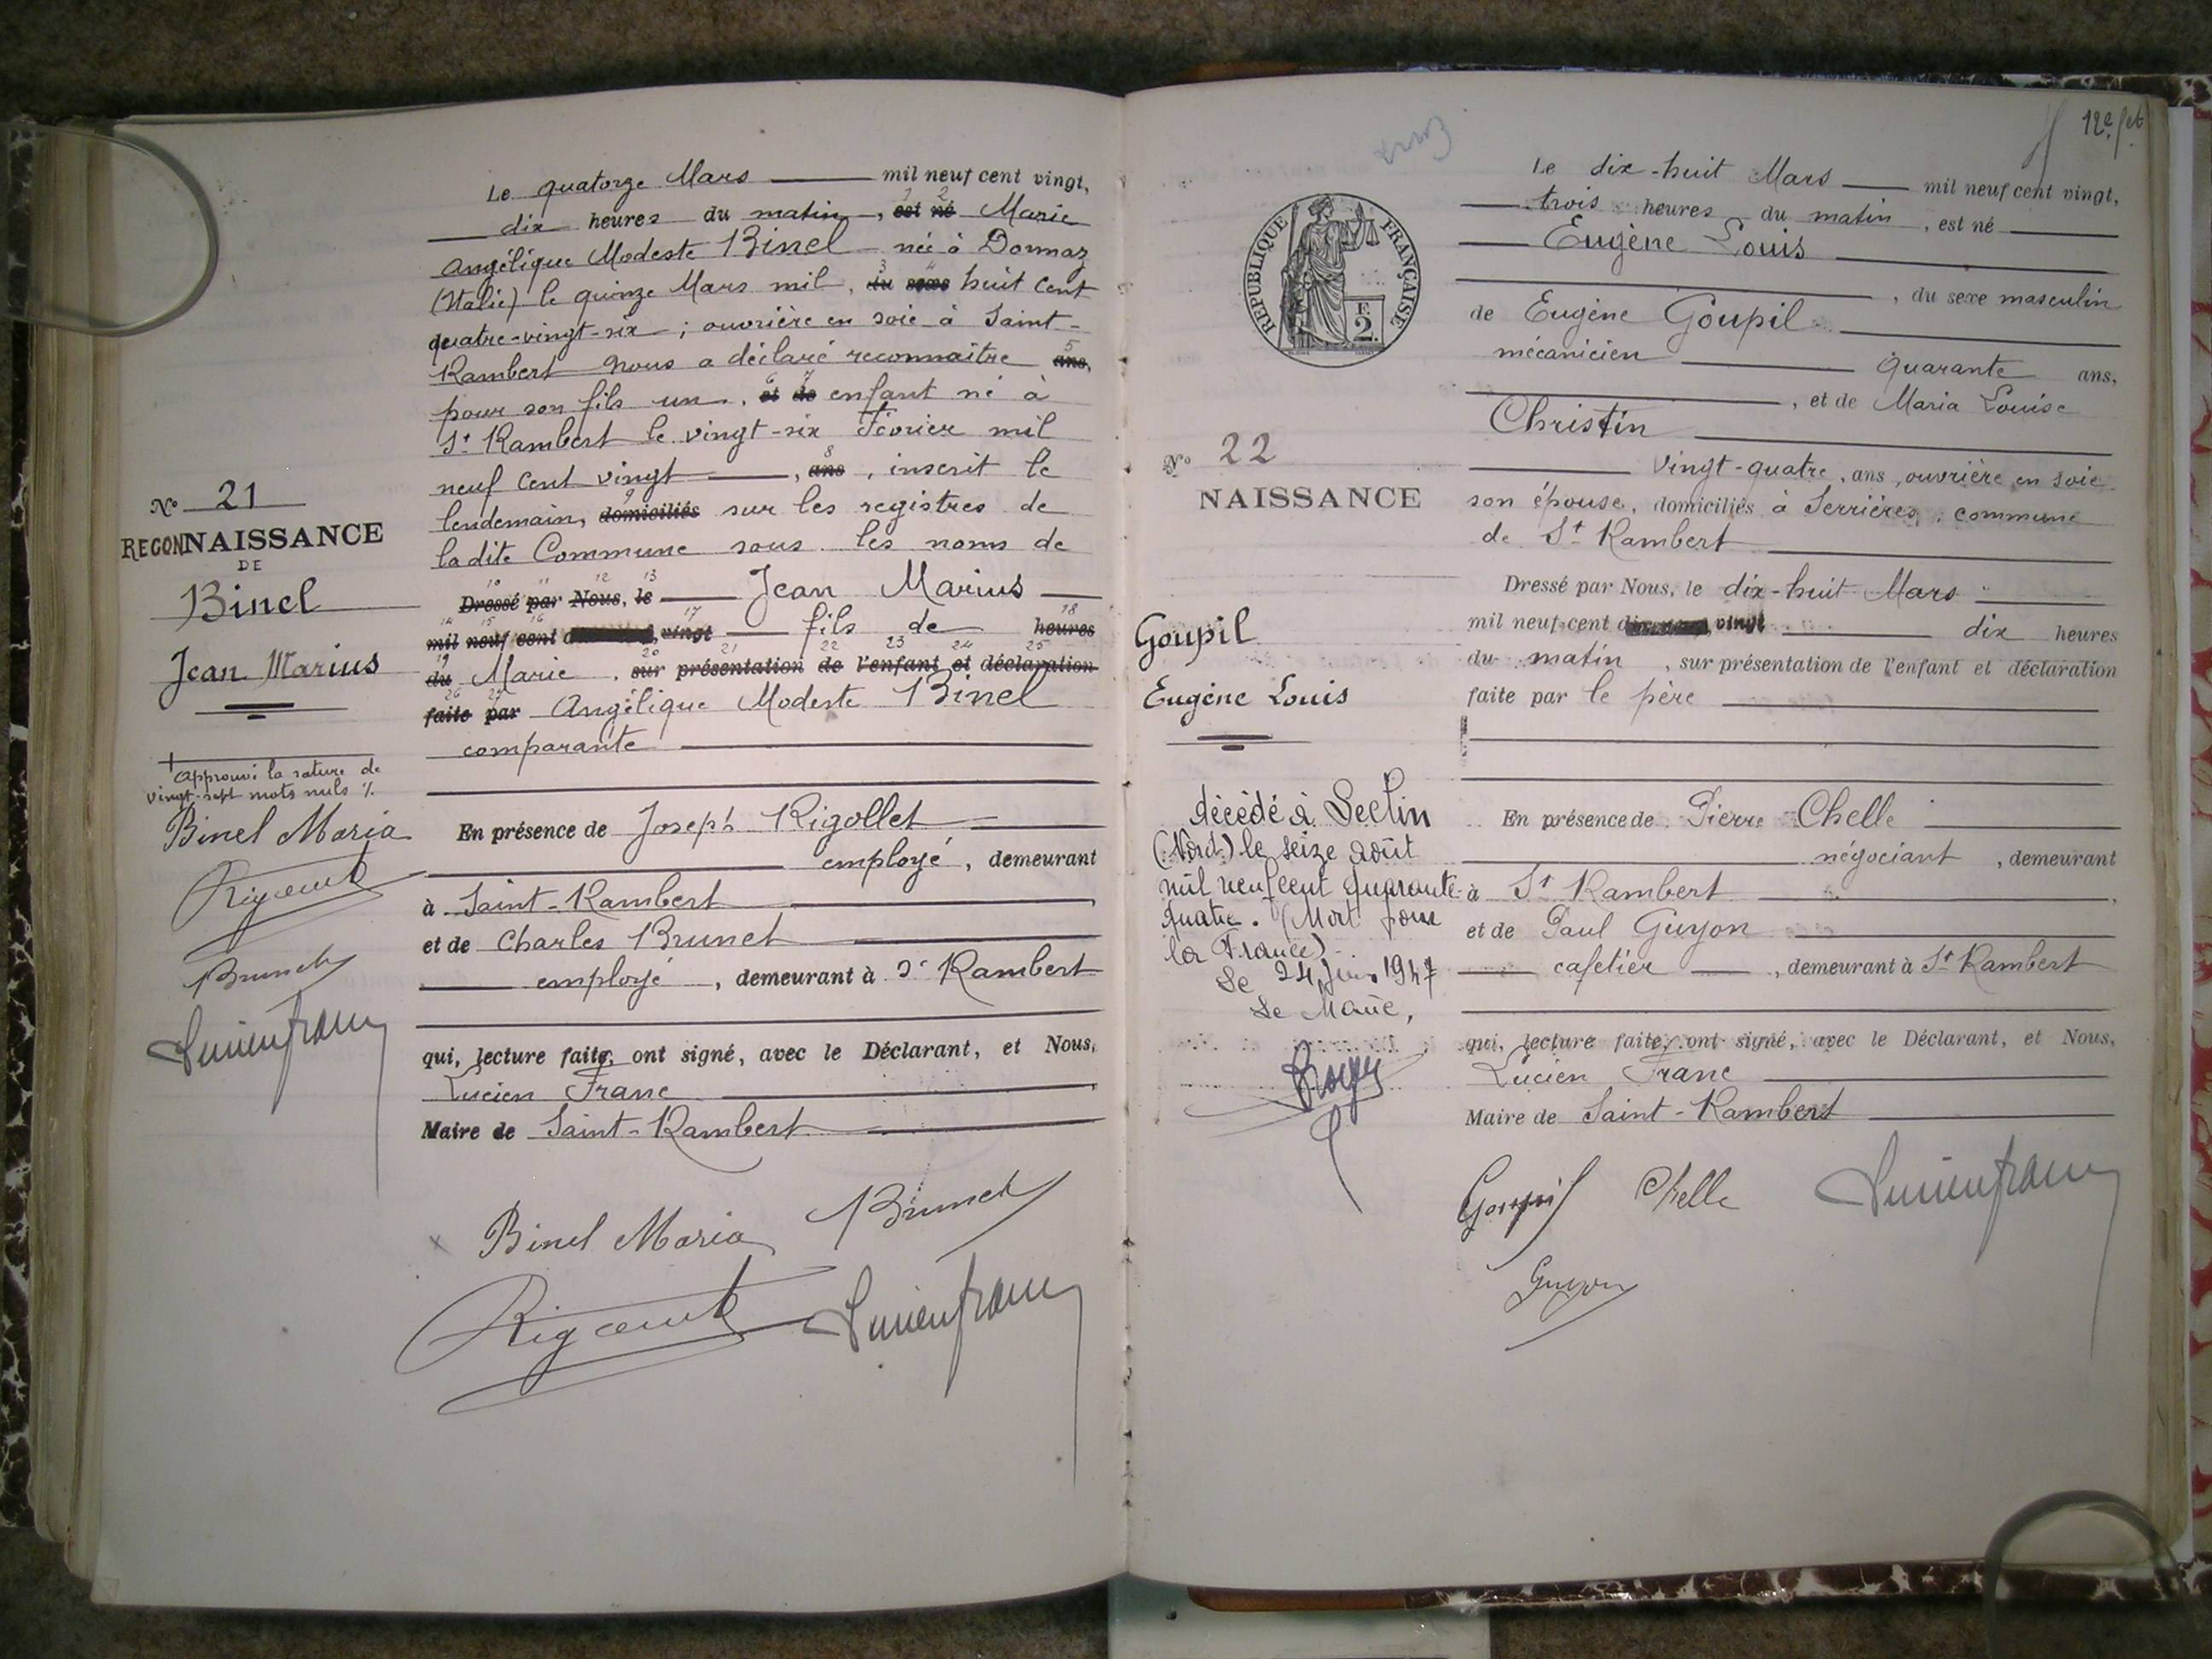 Le quatorze Mars mil neuf cent vingt,
dix heures du matin, est né Marie
Angélique Modeste Binel née à Donnaz
(Italie) le quinze Mars mil, du sexe huit cent
quatre-vingt-six ; ouvrière en soie à Saint-
Rambert nous a déclaré reconnaitre ans,
pour son fils un, et de enfant né à
St Rambert le vingt-six Février mil
neuf cent vingt, ans, inscrit le
lendemain, domiciliés sur les registres de
la dite Commune sous les noms de
Dressé par Nous, le Jean Marius
mil neuf cent vingt fils de heures
du Marie, sur présentation de l'enfant et déclaration
faite par Angélique Modeste Binel
comparante
En présence de Joseph Rigollet
employé, demeurant
à Saint-Rambert
et de Charles Brunet
employé, demeurant à St Rambert
qui, lecture faite, ont signé, avec le Déclarant, et Nous,
Lucien Franc
Maire de Saint-Rambert
Binel Maria Brunet
Lucien franc
N° 21
RECONNAISSANCE
DE
Binel
Jean Marius
Approuvé la rature de
vingt-sept mots nuls
Binel Maria
Brunet
Lucien franc
12e
Le dix-huit Mars mil neuf cent vingt,
trois heures du matin, est né
Eugène Louis
, du sexe masculin
de Eugène Goupil
mécanicien quarante ans,
, et de Maria Louise
Christin
vingt-quatre, ans, ouvrière en soie
son épouse, domiciliés à Serrières, commune
de St Rambert
Dressé par Nous, le dix-huit Mars
mil neuf cent vingt dix heures
du matin, sur présentation de l'enfant et déclaration
faite par le père
En présence de Pierre Chelle
négociant, demeurant
à St Rambert
et de Paul Guyon
cafetier, demeurant à St Rambert
qui, lecture faite, ont signé, avec le Déclarant, et Nous,
Lucien Franc
Maire de Saint-Rambert
Goupil Chelle Lucien franc
Guyon
RÉPUBLIQUE FRANÇAISE
F.
2.
N° 22
NAISSANCE
Goupil
Eugène Louis
décédé à Seclin
(Nord) le seize août
mil neuf cent quarante-
quatre. (Mort pour
la France)
Le 24 Juin 1947
Le Maire,